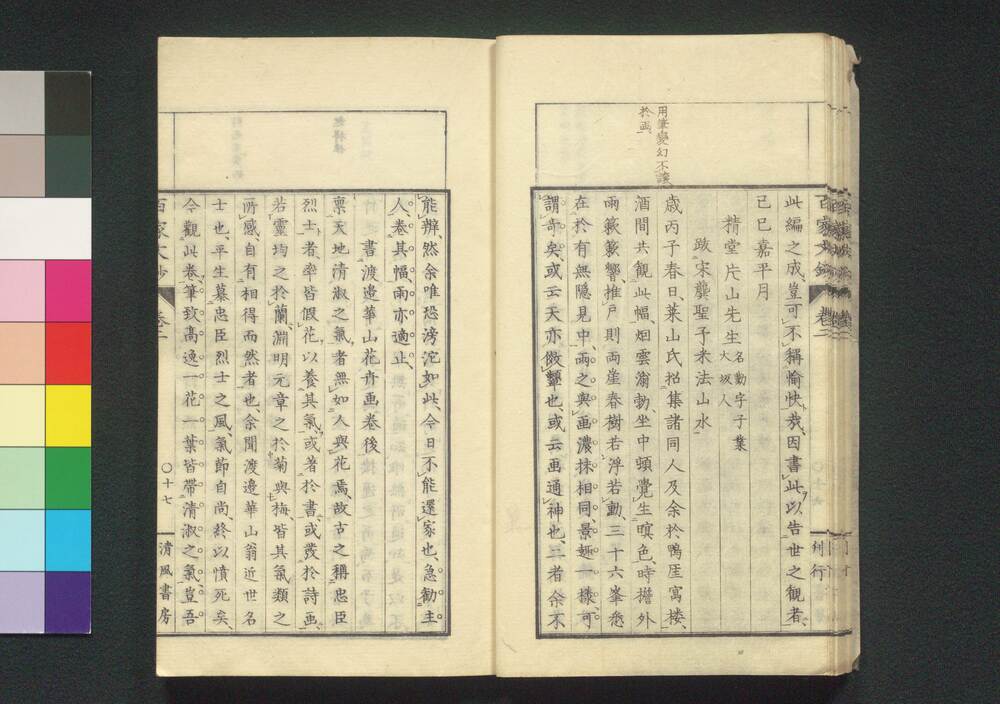 此編之成、豈可不稱愉快哉、因書此、以告世之観者、
己巳嘉平月
精堂片山先生 名勤字子業 大坂人
跋宋龔聖予米法山水
歳丙子春日、莱山氏招集諸同人及余於鴨厓寓楼、
酒間共観此幅、烟雲滃勃、坐中頓覺生暝色、時擔外
雨簌簌響、推戸則両崖春樹若浮若動、三十六峯悉
在於有無隠見中、雨之與画濃抹相同、景趣一様、可
謂奇矣、或云天亦傚顰也、或云画通神也、三者余不
用筆變幻不譲
於画
能辨、然余唯恐滂沱如此、今日不能還家也、急勸主
人卷其幅、雨亦適止、
書渡邉華山花卉画卷後
稟天地清淑之氣者、無如人與花焉、故古之稱忠臣
烈士者、率皆假花以養其氣、或著於書、或發於詩画、
若靈均之於蘭、淵明元章之於菊與梅、皆其氣類之
所感、自有相得而然者也、余聞渡邉華山翁近世名
士也、平生慕忠臣烈士之風、氣節自尚、終以憤死矣、
今觀此卷、筆致高逸、一花一葉皆帶清淑之氣、豈吾
百家文鈔 卷二 〇十七 清風書房